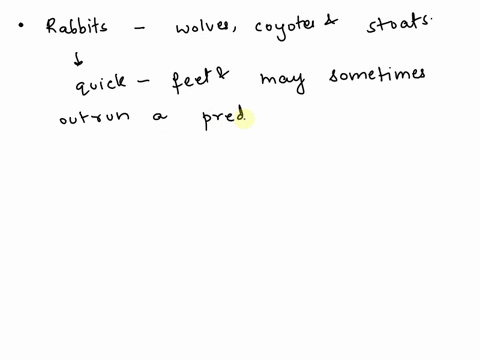 • Rabbits - wolves, coyotes & stoats.
↓
quick - feet & may sometimes
outrun a pred